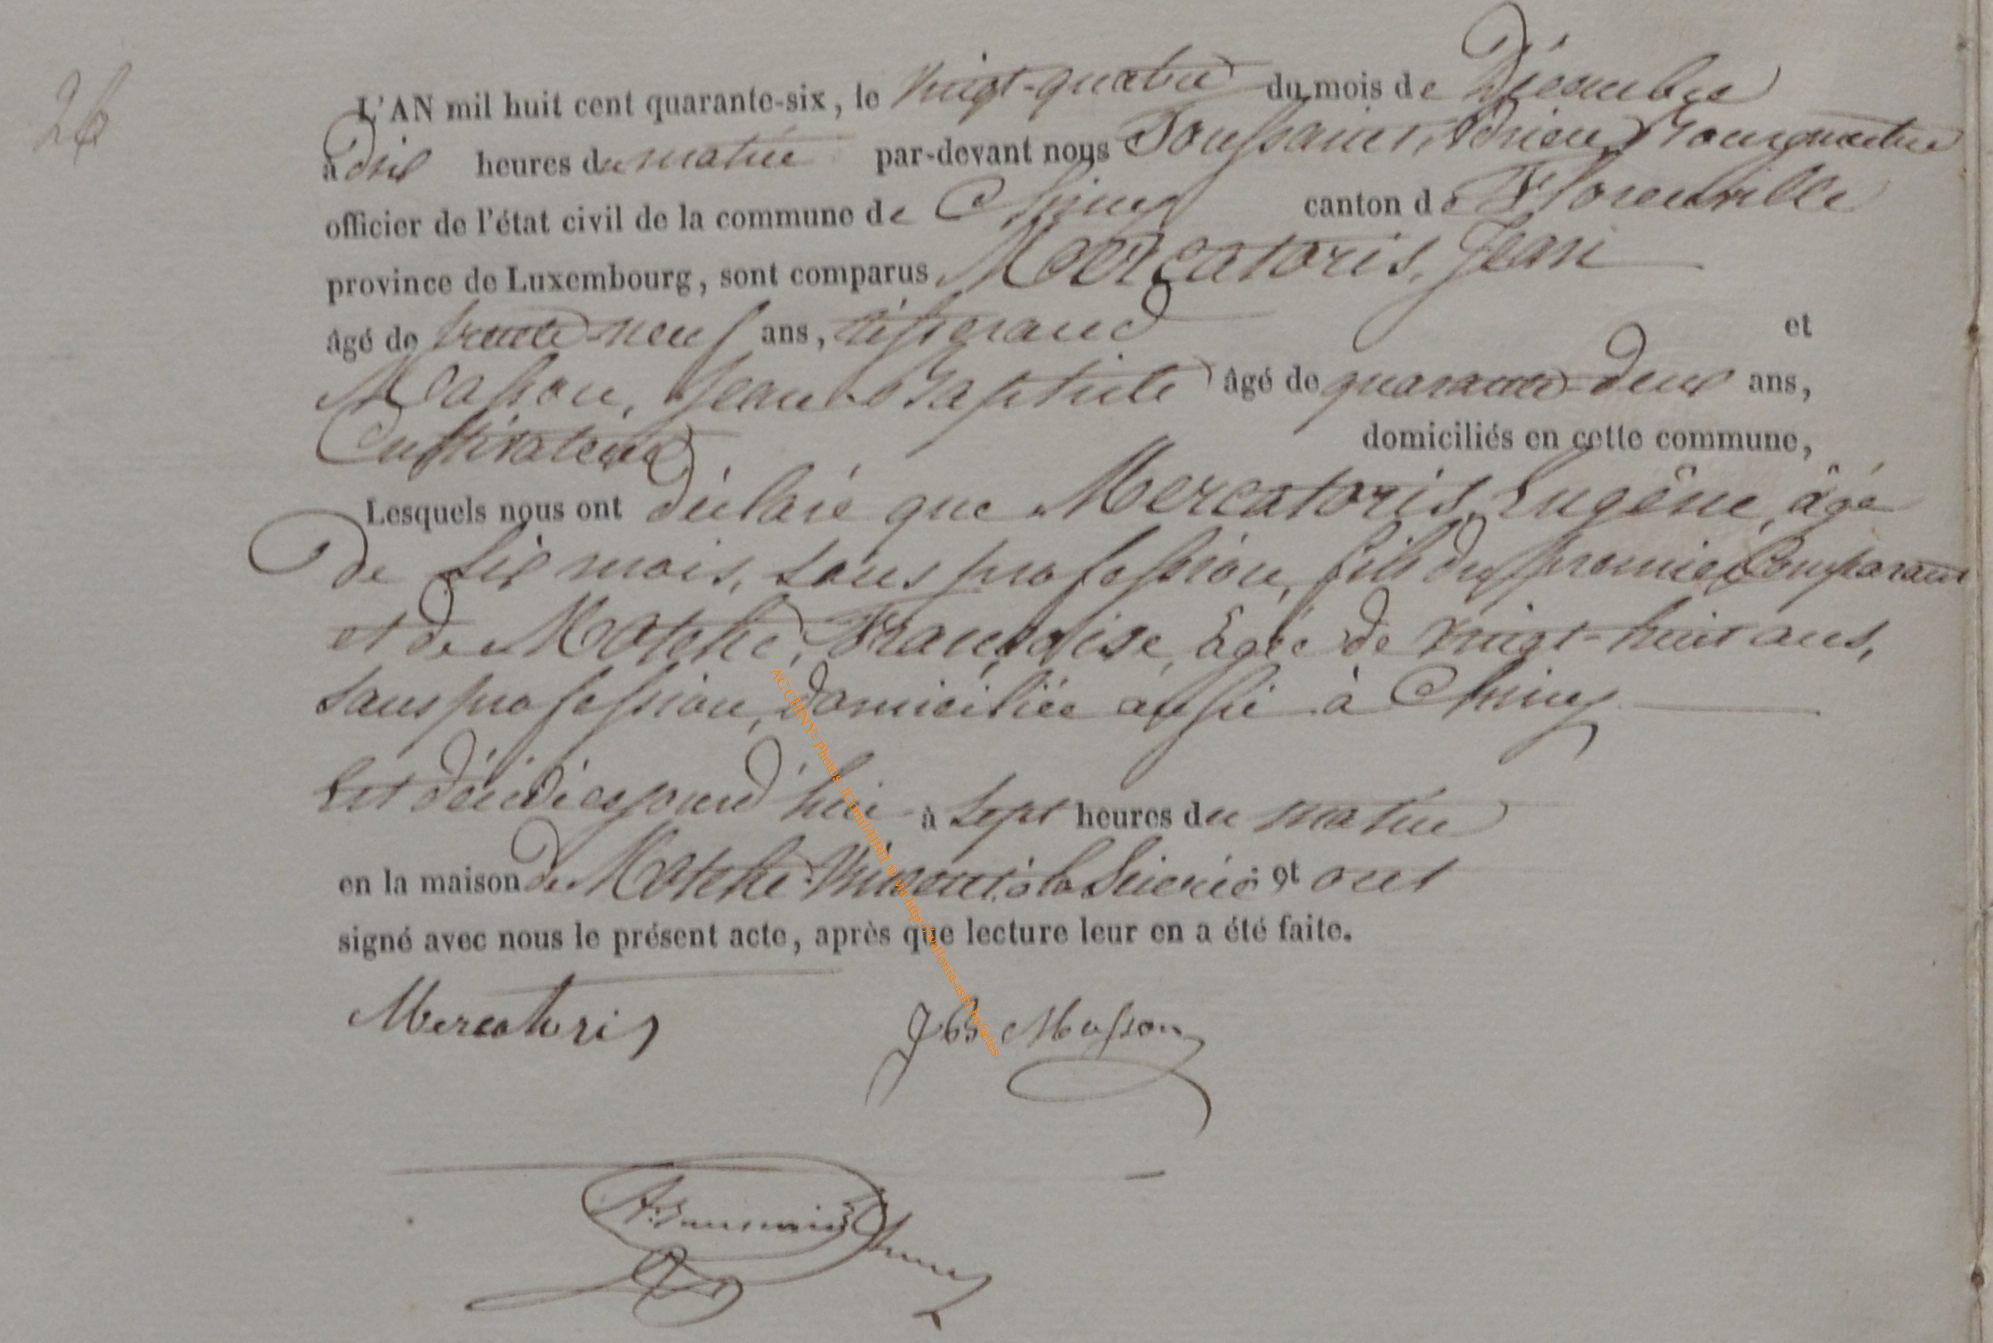 26
L'AN mil huit cent quarante-six, le vingt-quatre du mois de Décembre
à dix heures du matin par-devant nous Toussaint, Adrien
officier de l'état civil de la commune de Chiny canton de Florenville
province de Luxembourg, sont comparus Mercatoris, Jean
âgé de trente-neuf ans, tisserand et
Masson, Jean-Baptiste âgé de quarante-deux ans,
Cultivateur domiciliés en cette commune,
Lesquels nous ont déclaré que Mercatoris, Eugène, âgé
de six mois, sans profession, fils du premier Comparant
et de Motché, Françoise, âgée de vingt-huit ans,
sans profession, domiciliée aussi à Chiny
Est décédé aujourd'hui à sept heures du matin
en la maison de Motché Vincent, à la Scierie et ont
signé avec nous le présent acte, après que lecture leur en a été faite.
Mercatoris JBte Masson